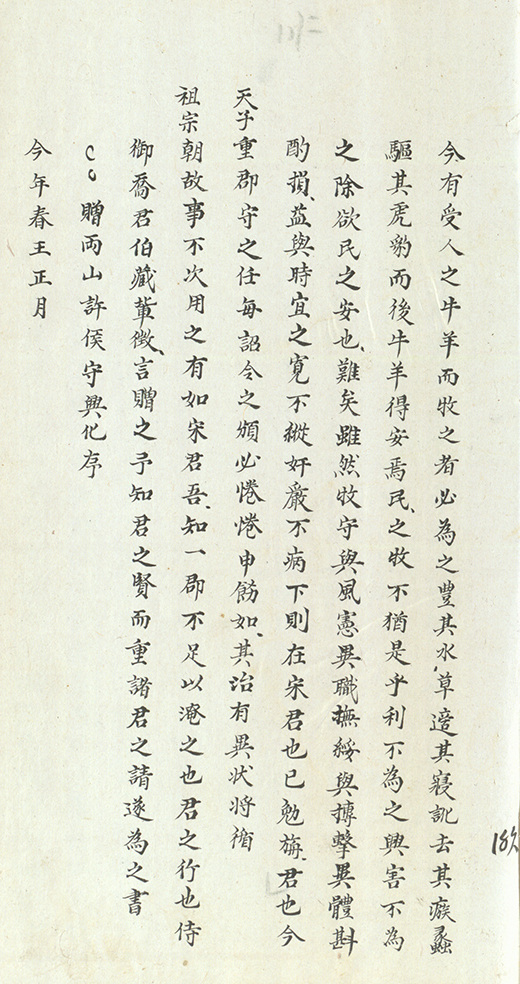 今有受人之牛羊而牧之者必為之豐其水草適其寢訛去其瘯蠡
驅其虎豹而後牛羊得安焉民之牧不猶是乎利不為之興害不為
之除欲民之安也難矣雖然牧守與風憲異職撫綏與搏擊異體斟
酌損益與時宜之寬不縱奸嚴不病下則在宋君也已勉旃君也今
天子重郡守之任每詔令之頒必惓惓申飭如其治有異狀将循
祖宗朝故事不次用之有如宋君吾知一郡不足以淹之也君之行也侍
御喬君伯藏軰徵言贈之予知君之賢而重諸君之請遂為之書
贈两山許侯守興化序
今年春王正月